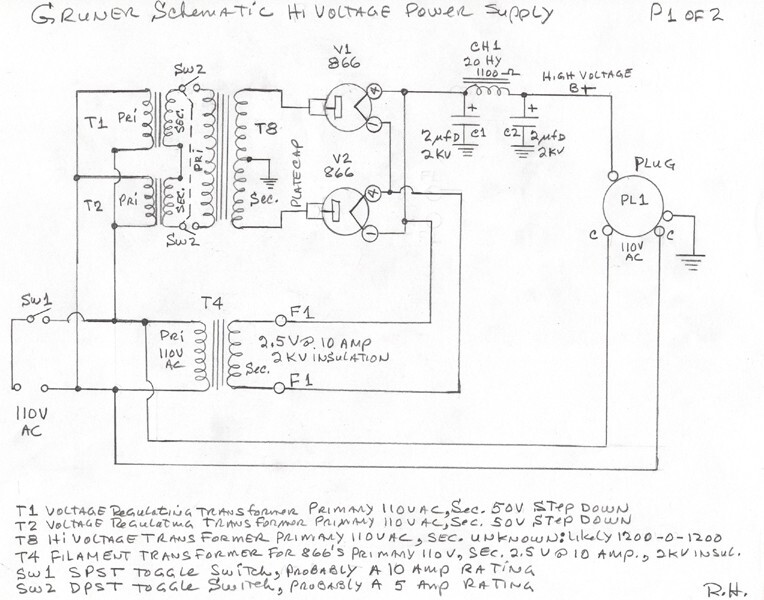 GRUNER SCHEMATIC HI VOLTAGE POWER SUPPLY P1 OF 2
V1
866
CH1
20 HY
1100 Ω
HIGH VOLTAGE
B+
SW2
T1
PRI
SEC.
PRI
T8
PLATE CAP
4
1
+
+
2µFD
2KV
C1
C2
2µFD
2KV
V2
866
PLUG
T2
PRI
SEC.
SEC.
4
1
PL1
C
C
110V
AC
SW2
SW1
T4
F1
PRI
110V
AC
SEC.
2.5V @ 10 AMP
2KV INSULATION
F1
110V
AC
T1 VOLTAGE REGULATING TRANSFORMER PRIMARY 110VAC, SEC. 50V STEP DOWN
T2 VOLTAGE REGULATING TRANSFORMER PRIMARY 110VAC, SEC. 50V STEP DOWN
T8 HI VOLTAGE TRANSFORMER PRIMARY 110VAC, SEC. UNKNOWN: LIKELY 1200-0-1200
T4 FILAMENT TRANSFORMER FOR 866'S PRIMARY 110V, SEC. 2.5V @ 10 AMP., 2KV INSUL.
SW1 SPST TOGGLE SWITCH, PROBABLY A 10 AMP RATING
SW2 DPST TOGGLE SWITCH, PROBABLY A 5 AMP RATING
R.H.